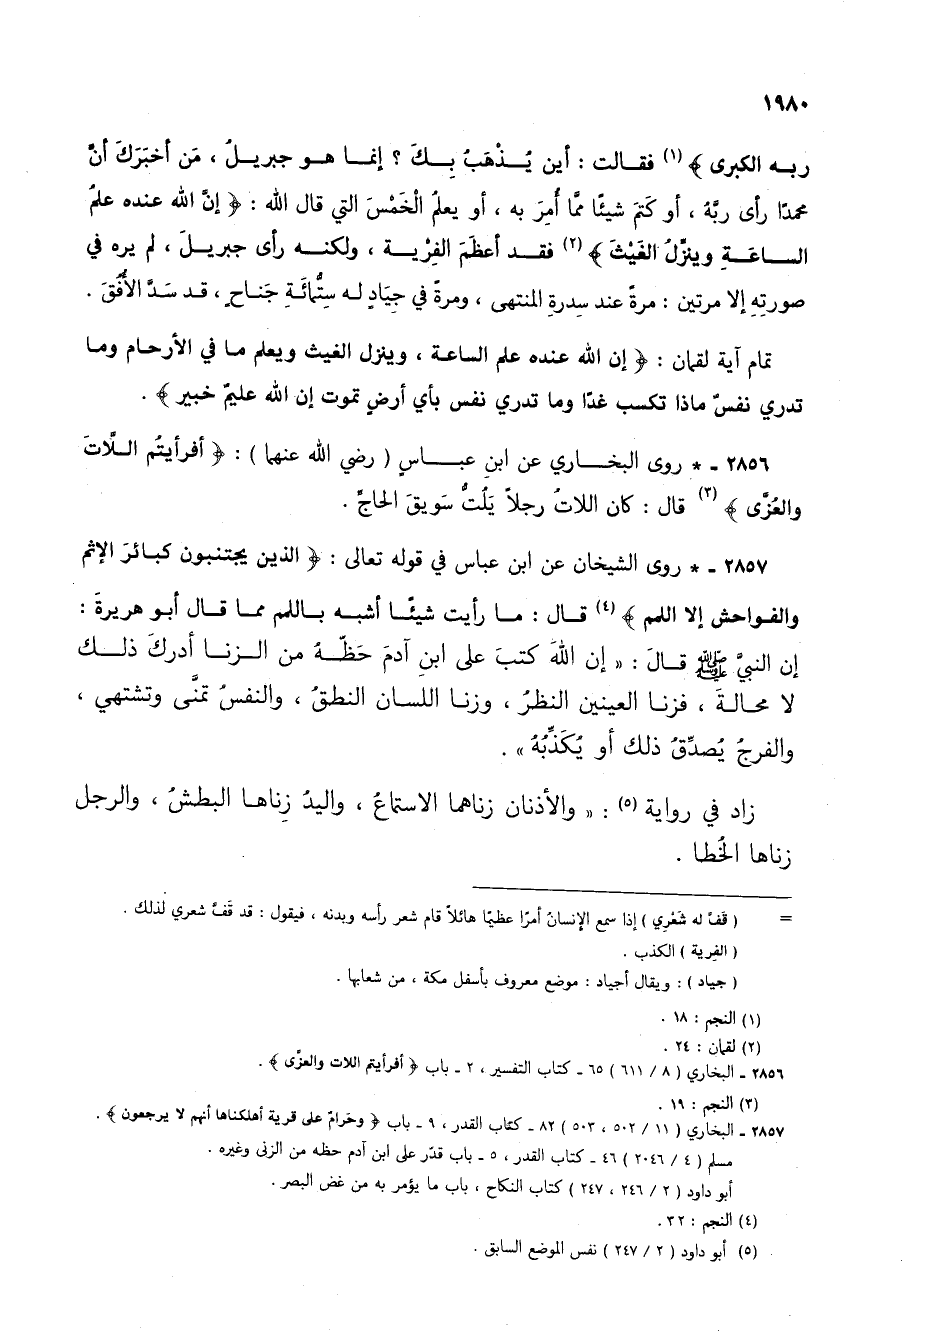 ١٩٨٠
ربه الكبرى ﴾ (١) فقالت : أين يُذْهَبُ بِكَ ؟ إنما هو جبريلُ ، مَن أخبَرَكَ أنَّ
محمدًا رأى ربَّهُ ، أو كَتَمَ شيئًا ممَّا أُمِرَ به ، أو يعلمُ الْخَمْسَ التي قال الله : ﴿ إنَّ الله عنده علمُ
الساعَةِ وينزِّلُ الغَيْثَ ﴾ (٢) فقد أعظَمَ الفِرْيةَ ، ولكنه رأى جبريلَ ، لم يره في
صورتِهِ إلا مرتين : مرةً عند سدرةِ المنتهى ، ومرةً في جيَادٍ له ستُّمائَةِ جَناحٍ ، قد سَدَّ الأُفُقَ .
تمام آية لقمان : ﴿ إن الله عنده علم الساعة ، وينزل الغيث ويعلم ما في الأرحام وما
تدري نفسٌ ماذا تكسب غدًا وما تدري نفس بأي أرضٍ تموت إن الله عليمٌ خبير ﴾ .
٢٨٥٦ ـ * روى البخاري عن ابنِ عباسٍ ( رضي الله عنهما ) : ﴿ أفرأيتُم اللَّاتَ
والعُزَّى ﴾ (٣) قال : كان اللاتُ رجلاً يَلُتُّ سَويقَ الحاجِّ .
٢٨٥٧ ـ * روى الشيخان عن ابن عباس في قوله تعالى : ﴿ الذين يجتنبون كبائرَ الإثمِ
والفواحش إلا اللمم ﴾ (٤) قال : ما رأيت شيئًا أشبه باللمم مما قال أبو هريرةَ :
إن النبيَّ ﷺ قالَ : « إن اللهَ كتبَ على ابنِ آدمَ حَظَّهُ من الزنا أدركَ ذلك
لا محالةَ ، فزنا العينين النظرُ ، وزنا اللسان النطقُ ، والنفسُ تمنَّى وتشتهي ،
والفرجُ يُصدِّقُ ذلك أو يُكَذِّبُهُ » .
زاد في رواية (٥) : « والأذنان زناهما الاستماعُ ، واليدُ زِناها البطشُ ، والرجل
زناها الخُطا .
= ( قَفَّ له شَعْرِي ) إذا سمع الإنسانُ أمرًا عظيمًا هائلاً قام شعر رأسه وبدنه ، فيقول : قد قَفَّ شعري لذلك .
( الفرية ) الكذب .
( جياد ) : ويقال أجياد : موضع معروف بأسفل مكة ، من شعابها .
(١) النجم : ١٨ .
(٢) لقمان : ٢٤ .
٢٨٥٦ ـ البخاري ( ٨ / ٦١١ ) ٦٥ ـ كتاب التفسير ، ٢ ـ باب ﴿ أفرأيتم اللات والعزَّى ﴾ .
(٣) النجم : ١٩ .
٢٨٥٧ ـ البخاري ( ١١ / ٥٠٢ ، ٥٠٣ ) ٨٢ ـ كتاب القدر ، ٩ ـ باب ﴿ وحَرامٌ على قرية أهلكناها أنهم لا يرجعون ﴾ .
مسلم ( ٤ / ٢٠٤٦ ) ٤٦ ـ كتاب القدر ، ٥ ـ باب قدّر على ابن آدم حظه من الزنى وغيره .
أبو داود ( ٢ / ٢٤٦ ، ٢٤٧ ) كتاب النكاح ، باب ما يؤمر به من غض البصر .
(٤) النجم : ٣٢ .
(٥) أبو داود ( ٢ / ٢٤٧ ) نفس الموضع السابق .